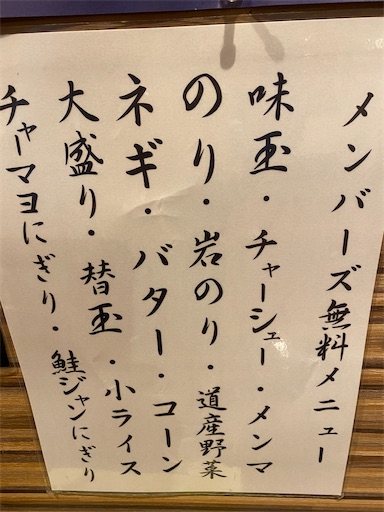 メンバーズ無料メニュー
味玉・チャーシュー・メンマ
のり・岩のり・道産野菜
ネギ・バター・コーン
大盛り・替玉・小ライス
チャーマヨにぎり・鮭ジャンにぎり